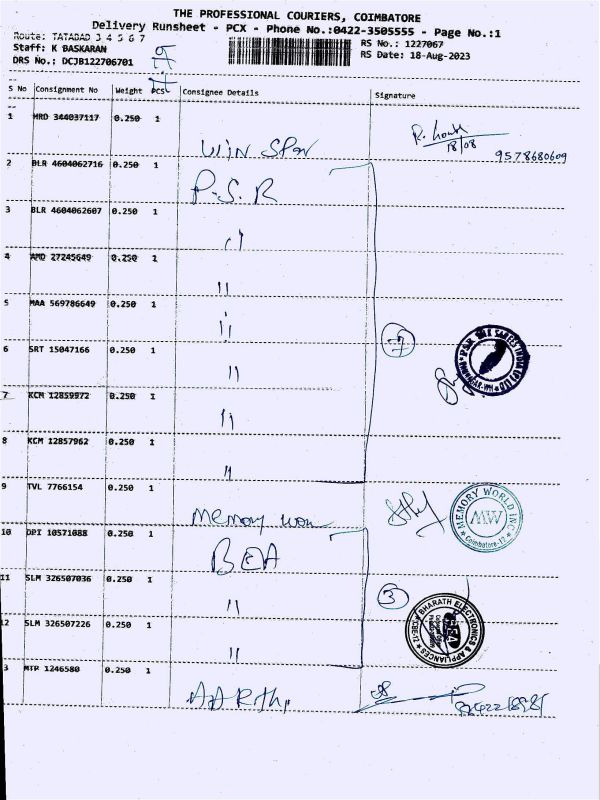 THE PROFESSIONAL COURIERS, COIMBATORE
Delivery Runsheet - PCX - Phone No.:0422-3505555 - Page No.:1
Route: TATABAD 3 4 5 6 7
Staff: K BASKARAN
DRS No.: DCJB122706701
RS No.: 1227067
RS Date: 18-Aug-2023
S No Consignment No Weight PCS Consignee Details Signature
1 HRD 344037117 0.250 1 WIN 18/08 9578680609
2 BLR 4604062716 0.250 1 P.S.R
3 BLR 4604062607 0.250 1 "
4 AMD 27245649 0.250 1 "
5 MAA 569786649 0.250 1 "
6 SRT 15047166 0.250 1 "
7 KCM 12859972 0.250 1 "
8 KCM 12857962 0.250 1 "
7
9 TVL 7766154 0.250 1 Memory
MEMORY WORLD INC
MW
Coimbatore-12
10 DPT 10571088 0.250 1
11 SLM 326507036 0.250 1 "
12 SLM 326507226 0.250 1 "
3
BHARATH ELECTRONICS & APPLIANCES
CBE-12
3 MTP 1246580 0.250 1